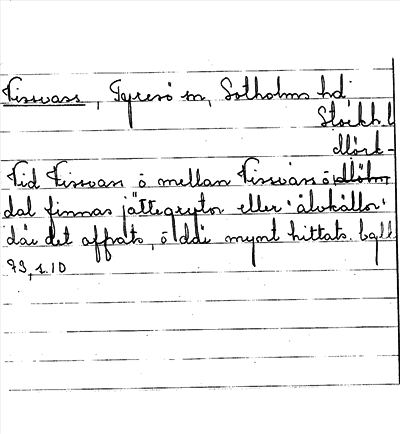 Tissvass, Tyresö sn, Sotholms hd
Stockh.l
Mörk-
Vid Tissvass ö mellan Tissvass ö
dal finnas jättegrytor eller "älvkällor"
där det offrats, o där mynt hittats.
93, s. 10